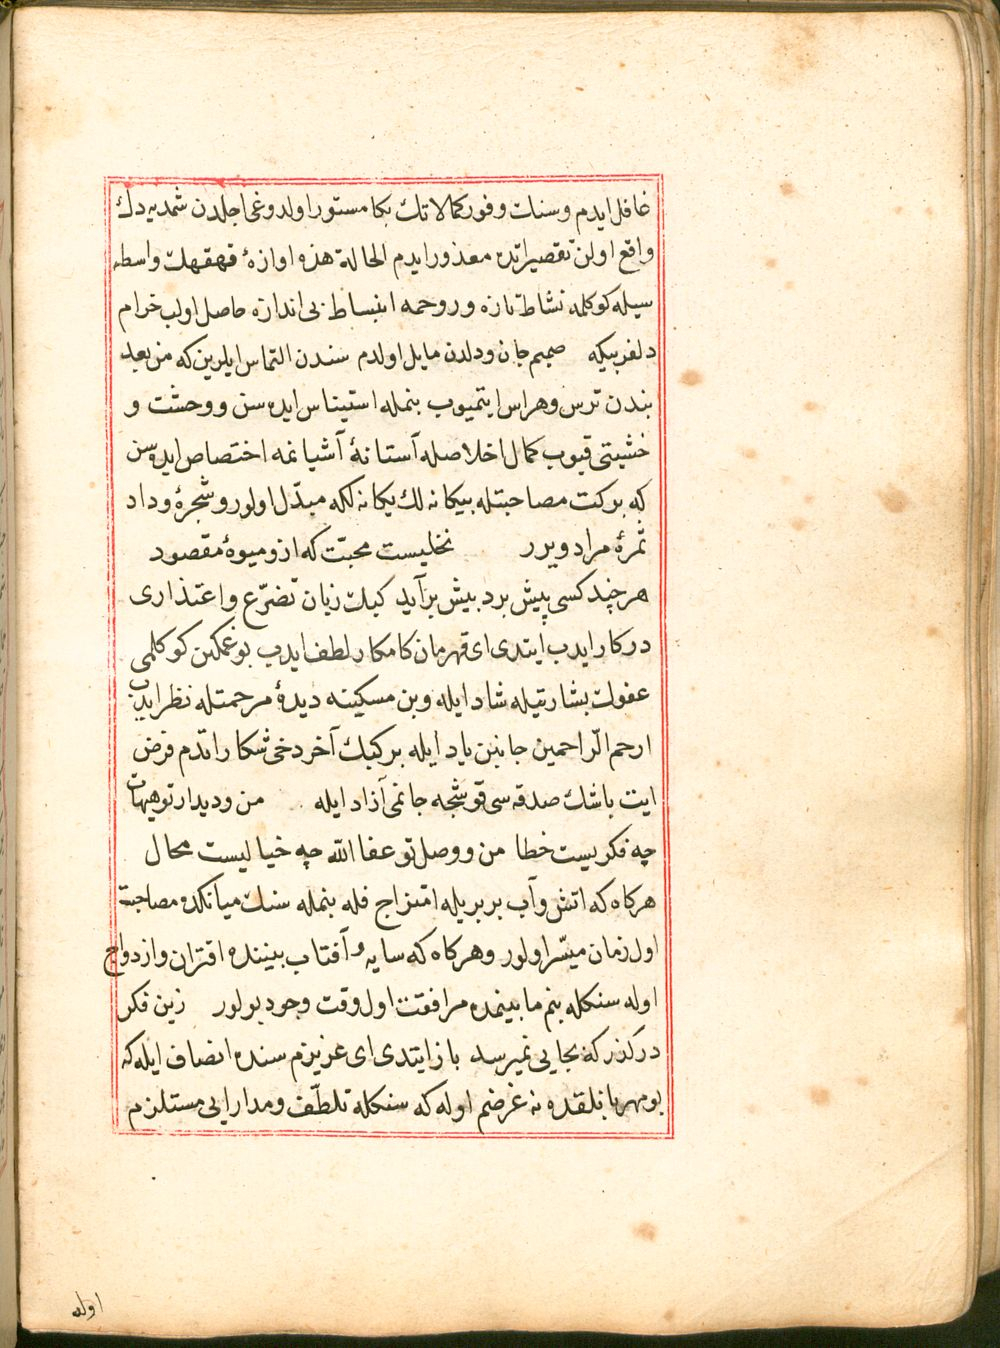 غافل ایدم وسنك وفور کمالاتك بکا مستور اولدوغی اجلدن شمدیه دك
واقع اولن تقصیراتده معذور ایدم الحالة هذه اوازهٔ قهقهك واسطه
سیله کوکلمه نشاط تازه وروحمه انبساط بی اندازه حاصل اولب خرام
دلفریبکه صمیم جان ودلدن مایل اولدم سندن التماس ایلرین که من بعد
بندن ترس وهراس ایتمیوب بنمله استیناس ایده سن ووحشت و
خشیتی قیوب کمال اخلاصله آستانهٔ آشیانمه اختصاص ایده سن
که برکت مصاحبتله بیکانه لك یکانه لکه مبدّل اولور وشجرهٔ وداد
ثمرهٔ مراد ویرر نخلیست محبّت که ازو میوهٔ مقصود
هرچند کسی پیش برد بیش برآید کبك زبان تضرّع واعتذاری
درکار ایدب ایتدی ای قهرمان کامکار لطف ایدب بو غمکین کوکلمی
عفوك بشارتیله شاد ایله وبن مسکینه دیدهٔ مرحمتله نظر ایدب
ارحم الرّاحمین جانبن یاد ایله بر کبك آخر دخی شکار اتدم فرض
ایت باشك صدقه سی قوشجه جانمی آزاد ایله من ودیدار تو هیهات
چه فکریست خطا من ووصل تو عفا الله چه خیالیست محال
هرکاه که اتش وآب بربریله امتزاج قله بنمله سنك میانکده مصاحبة
اول زمان میسّر اولور وهرکاه که سایه وآفتاب بیننده اقتران وازدواج
اوله سنکله بنم مابینمده مرافقت اول وقت وجود بولور زین فکر
درکذر که بجایی نمیرسد باز ایتدی ای عزیزم سنده انصاف ایله که
بو مهربانلقده نه غرضم اوله که سنکله تلطّف ومدارایی مستلزم
اوله